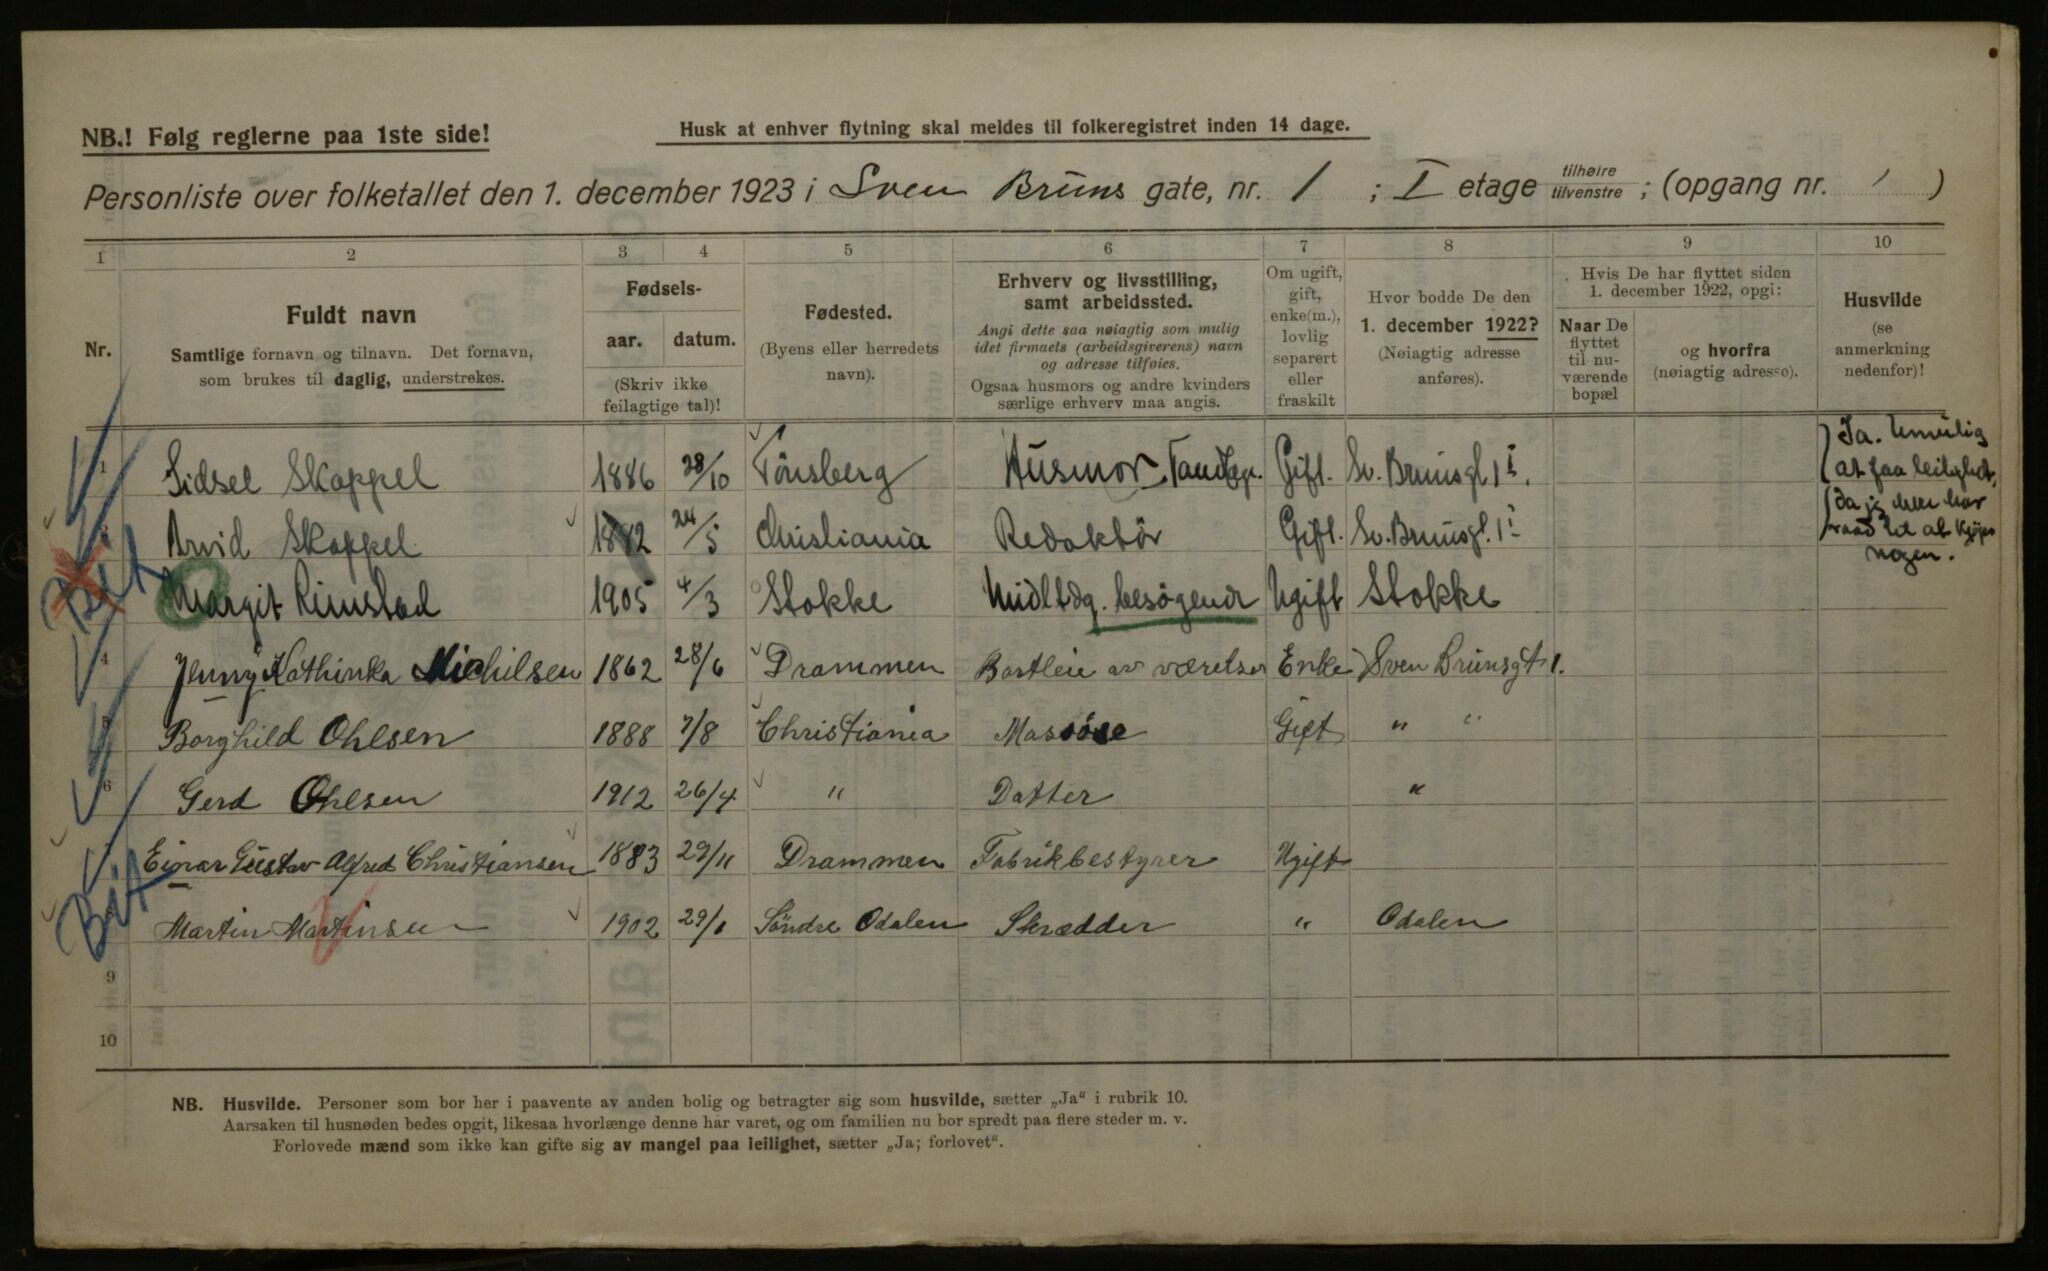 NB.! Følg reglerne paa 1ste side!
Husk at enhver flytning skal meldes til folkeregistret inden 14 dage.
Personliste over folketallet den 1. december 1923 i Sven Bruns gate, nr. 1 ; I etage tilhøire tilvenstre ; (opgang nr. 1 )
1 2 3 4 5 6 7 8 9 10
Nr.
Fuldt navn
Samtlige fornavn og tilnavn. Det fornavn,
som brukes til daglig, understrekes.
Fødsels-
aar. datum.
(Skriv ikke
feilagtige tal)!
Fødested.
(Byens eller herredets
navn).
Erhverv og livsstilling,
samt arbeidssted.
Angi dette saa nøiagtig som mulig
idet firmaets (arbeidsgiverens) navn
og adresse tilføies.
Ogsaa husmors og andre kvinders
særlige erhverv maa angis.
Om ugift,
gift,
enke(m.),
lovlig
separert
eller
fraskilt
Hvor bodde De den
1. december 1922?
(Nøiagtig adresse
anføres).
Hvis De har flyttet siden
1. december 1922, opgi:
Naar De
flyttet
til nu-
værende
bopæl
og hvorfra
(nøiagtig adresse).
Husvilde
(se
anmerkning
nedenfor)!
1 Sidsel Skappel 1886 28/10 Tönsberg Husmor Tandlæge. Gift. Sv. Brunsgt. 1 I. Ja. Umulig
at faa leilighet,
2 Arvid Skappel 24/5 Christiania Redaktör Gift. Sv. Brunsgt. 1 I da jeg ikke har
raad til at kjöpe
nogen.
Margit Rimstad 1905 4/3 Stokke Midltdg. besøgende Ugift Stokke
4 Jenny Kathinka Michilsen 1862 28/6 Drammen Bortleie av værelser Enke Sven Brunsgt 1.
5 Borghild Ohlsen 1888 7/8 Christiania Massöse Gift " "
6 Gerd Ohlsen 1912 26/4 " Datter "
7 Einar Gustav Alfred Christiansen 1883 29/11 Drammen Fabrikbestyrer Ugift
8 Martin Martinsen 1902 29/1 Söndre Odalen Skrædder " Odalen
9
10
NB. Husvilde. Personer som bor her i paavente av anden bolig og betragter sig som husvilde, sætter „Ja“ i rubrik 10.
Aarsaken til husnøden bedes opgit, likesaa hvorlænge denne har varet, og om familien nu bor spredt paa flere steder m. v.
Forlovede mænd som ikke kan gifte sig av mangel paa leilighet, sætter „Ja; forlovet“.